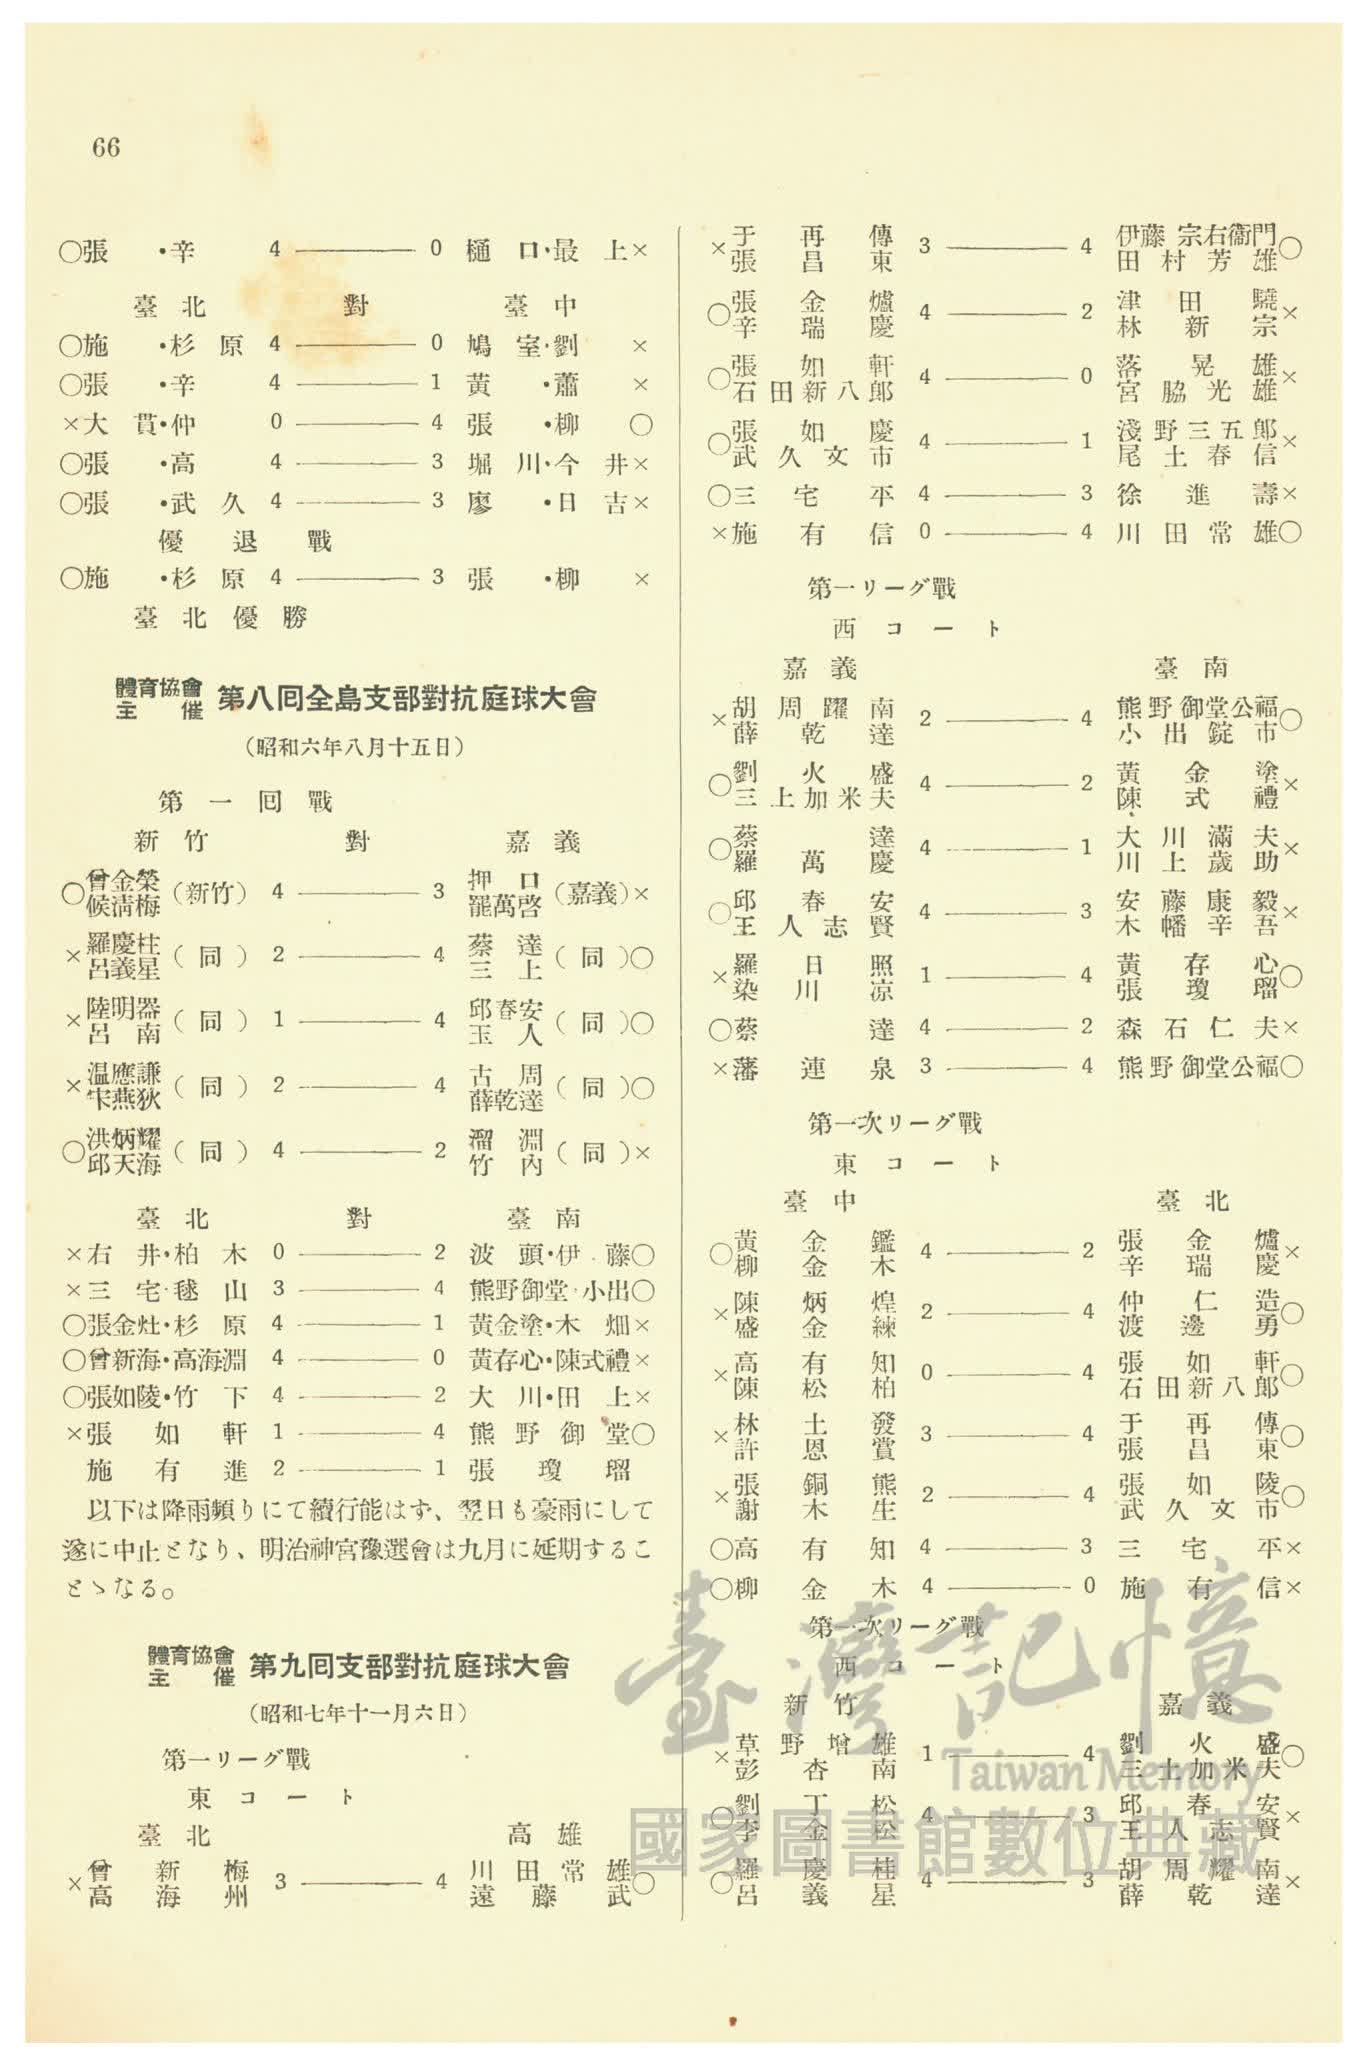 66
○張・辛 4 ── 0 樋口・最上×
臺北 對 臺中
○施・杉原 4 ── 0 鳩室・劉×
○張・辛 4 ── 1 黃・蕭×
×大貫・仲 0 ── 4 張・柳○
○張・高 4 ── 3 堀川・今井×
○張・武久 4 ── 3 廖・日吉×
優退戰
○施・杉原 4 ── 3 張・柳×
臺北優勝
體育協會主催 第八回全島支部對抗庭球大會
(昭和六年八月十五日)
第一回戰
新竹 對 嘉義
○曾金榮 候清梅(新竹) 4 ── 3 押口 罷萬啓(嘉義)×
×羅慶柱 呂義星(同) 2 ── 4 蔡達 三上(同)○
×陸明器 呂南(同) 1 ── 4 邱春安 玉人(同)○
×温應謙 宋燕狄(同) 2 ── 4 古周 薛乾達(同)○
○洪炳耀 邱天海(同) 4 ── 2 溜淵 竹內(同)×
臺北 對 臺南
×右井・柏木 0 ── 2 波頭・伊藤○
×三宅・毬山 3 ── 4 熊野御堂・小出○
○張金灶・杉原 4 ── 1 黃金塗・木畑×
○曾新海・高海淵 4 ── 0 黃存心・陳式禮×
○張如陵・竹下 4 ── 2 大川・田上×
×張如軒 1 ── 4 熊野御堂○
施有進 2 ── 1 張瓊瑠
以下は降雨頻りにて續行能はず、翌日も豪雨にして
遂に中止となり、明治神宮豫選會は九月に延期するこ
とゝなる。
體育協會主催 第九回支部對抗庭球大會
(昭和七年十一月六日)
第一リーグ戰
東コート
臺北 高雄
×曾新梅 高海州 3 ── 4 川田常雄 遠藤武○
×于再傳 張昌東 3 ── 4 伊藤宗右衞門 田村芳雄○
○張金爐 辛瑞慶 4 ── 2 津田驍 林新宗×
○張如軒 石田新八郞 4 ── 0 落晃雄 宮脇光雄×
○張如慶 武久文市 4 ── 1 淺野三五郞 尾土春信×
○三宅平 4 ── 3 徐進壽×
×施有信 0 ── 4 川田常雄○
第一リーグ戰
西コート
嘉義 臺南
×胡周躍南 薛乾達 2 ── 4 熊野御堂公福 小出錠市○
○劉火盛 三上加米夫 4 ── 2 黃金塗 陳式禮×
○蔡達 羅萬慶 4 ── 1 大川滿夫 川上歲助×
○邱春安 王人志賢 4 ── 3 安藤康毅 木幡辛吾×
×羅日照 染川凉 1 ── 4 黃存心 張瓊瑠○
○蔡達 4 ── 2 森石仁夫×
×藩連泉 3 ── 4 熊野御堂公福○
第一次リーグ戰
東コート
臺中 臺北
○黃金鑑 柳金木 4 ── 2 張金爐 辛瑞慶×
×陳炳煌 盛金練 2 ── 4 仲仁造 渡邊勇○
×高有知 陳松柏 0 ── 4 張如軒 石田新八郞○
×林土發 許恩賞 3 ── 4 于再傳 張昌東○
×張銅熊 謝木生 2 ── 4 張如陵 武久文市○
○高有知 4 ── 3 三宅平×
○柳金木 4 ── 0 施有信×
第一次リーグ戰
西コート
新竹 嘉義
×草野增雄 彭杏南 1 ── 4 劉火盛 三上加米夫○
○劉丁松 李金松 4 ── 3 邱春安 王人志賢×
○羅慶桂 呂義星 4 ── 3 胡周耀南 薛乾達×
臺灣記憶
Taiwan Memory
國家圖書館數位典藏